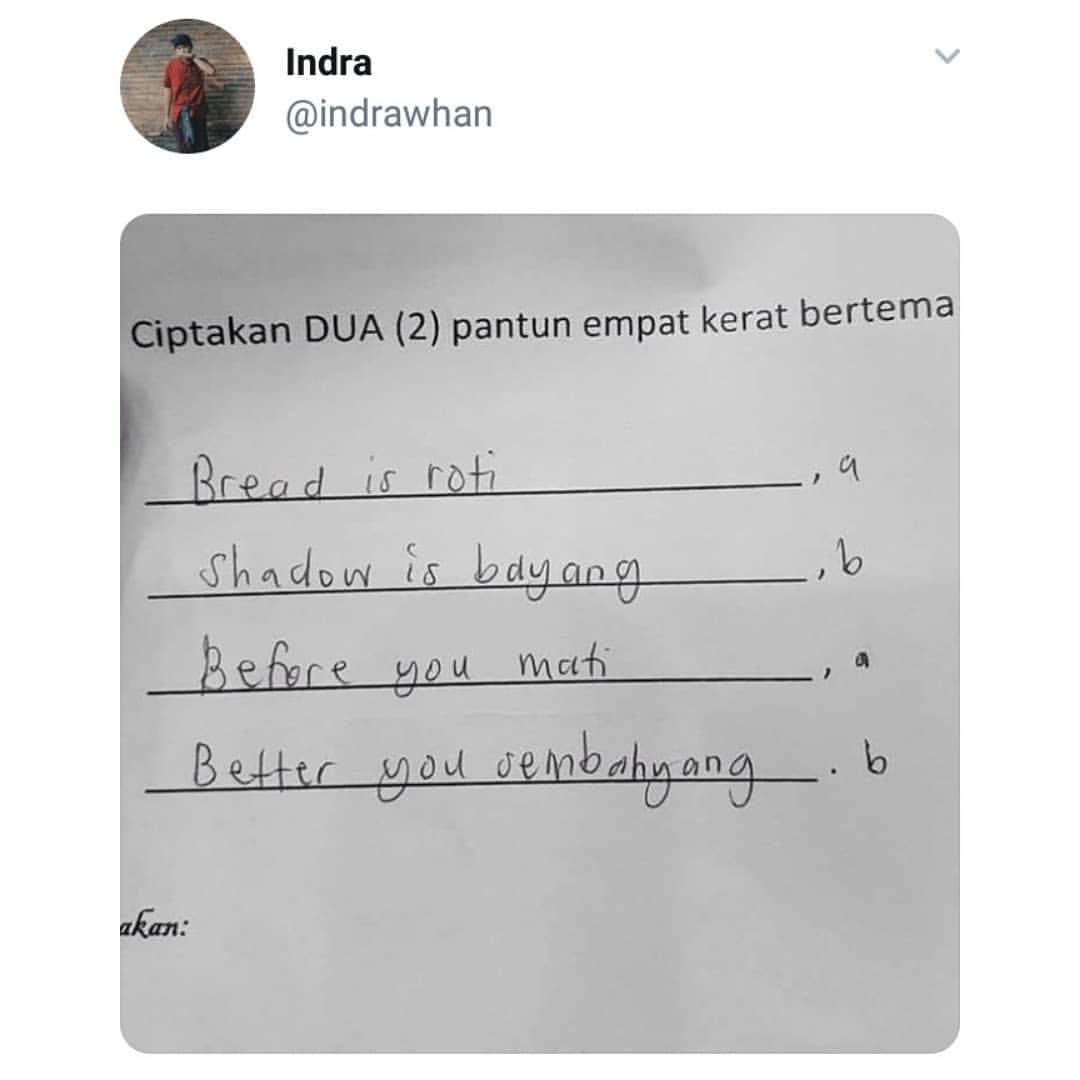 Indra
@indrawhan
Ciptakan DUA (2) pantun empat kerat bertema
Bread is roti, a
Shadow is bayang, b
Before you mati, a
Better you sembahyang. b
akan: